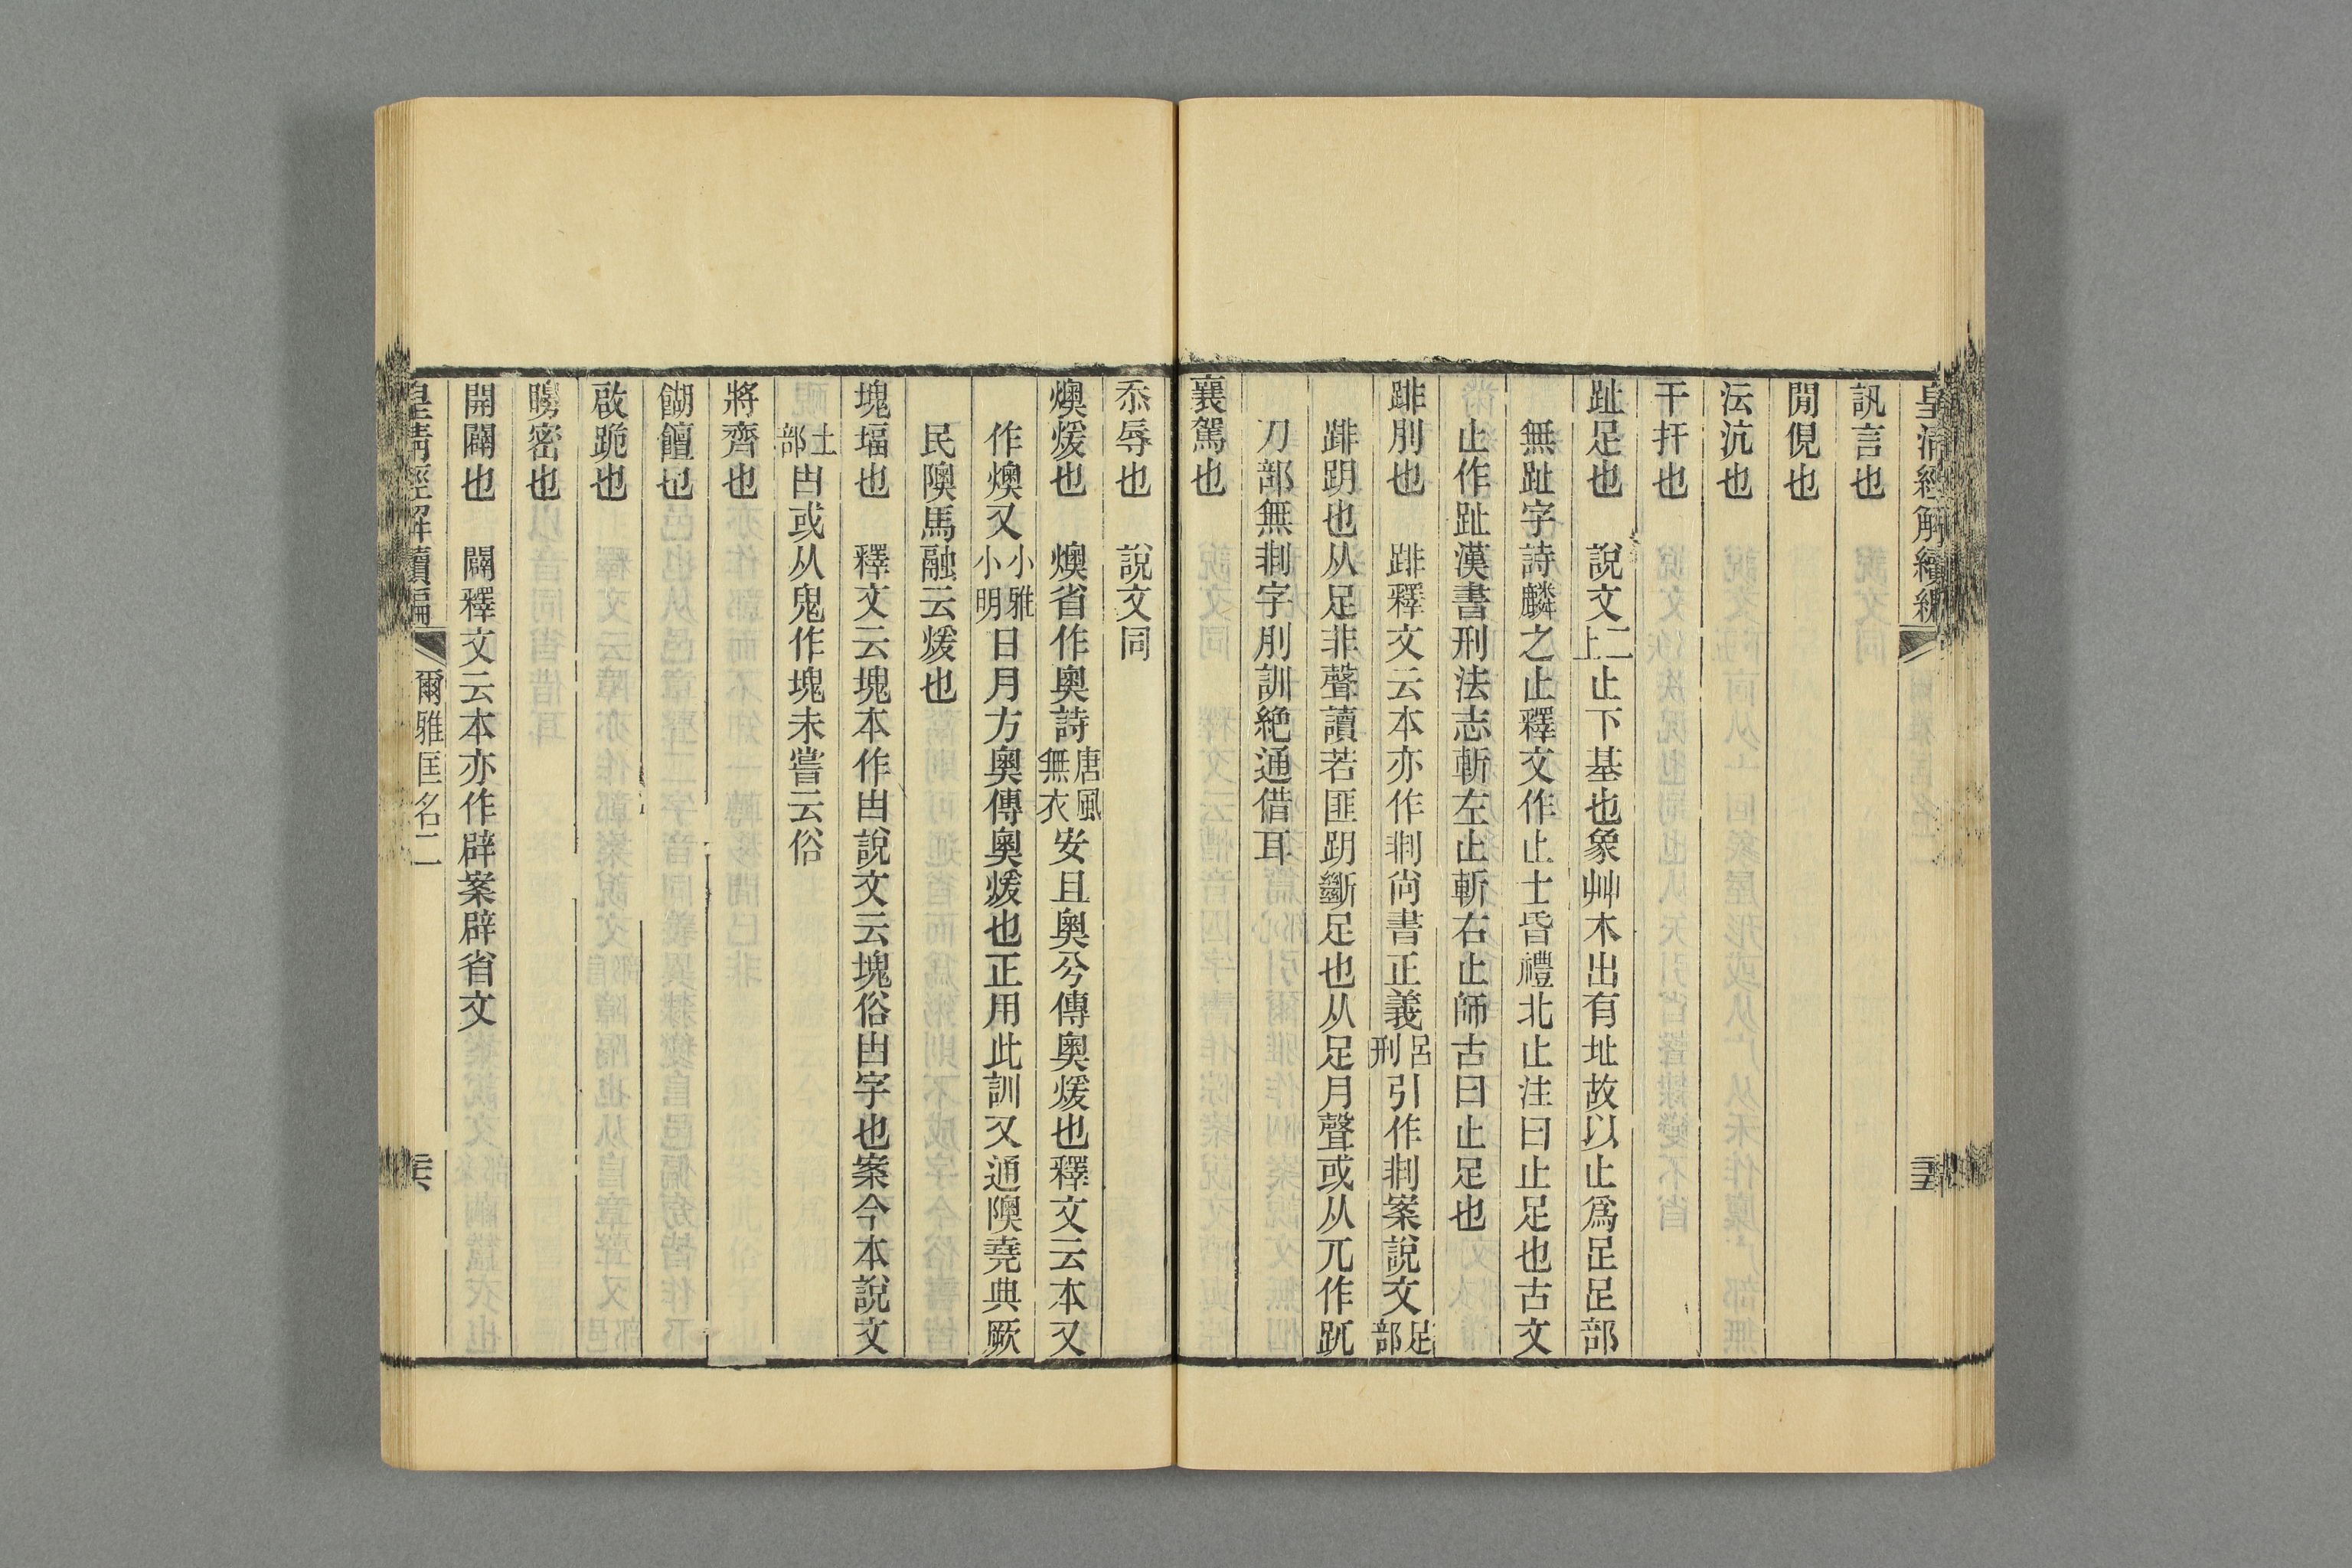 皇清經解續編
訊言也
閒俔也
沄沆也
干扞也
趾足也　說文二上止下基也象艸木出有址故以止爲足足部
無趾字詩麟之止釋文作止士昏禮北止注曰止足也古文
止作趾漢書刑法志斬左止斬右止師古曰止足也
跸刖也　跸釋文云本亦作剕尚書正義呂刑引作剕案說文足部
跸跀也从足非聲讀若匪跀斷足也从足月聲或从兀作趴
刀部無剕字刖訓絶通借耳
襄駕也
忝辱也　說文同
燠煖也　燠省作奧詩唐風無衣安且奧兮傳奧煖也釋文云本又
作燠又小雅小明日月方奧傳奧煖也正用此訓又通隩堯典厥
民隩馬融云煖也
塊堛也　釋文云塊本作凷說文云塊俗凷字也案今本說文
土部凷或从鬼作塊未嘗云俗
將齊也
餬饘也
啟跪也
矏密也
開闢也　闢釋文云本亦作辟案辟省文
皇清經解續編　爾雅匡名二